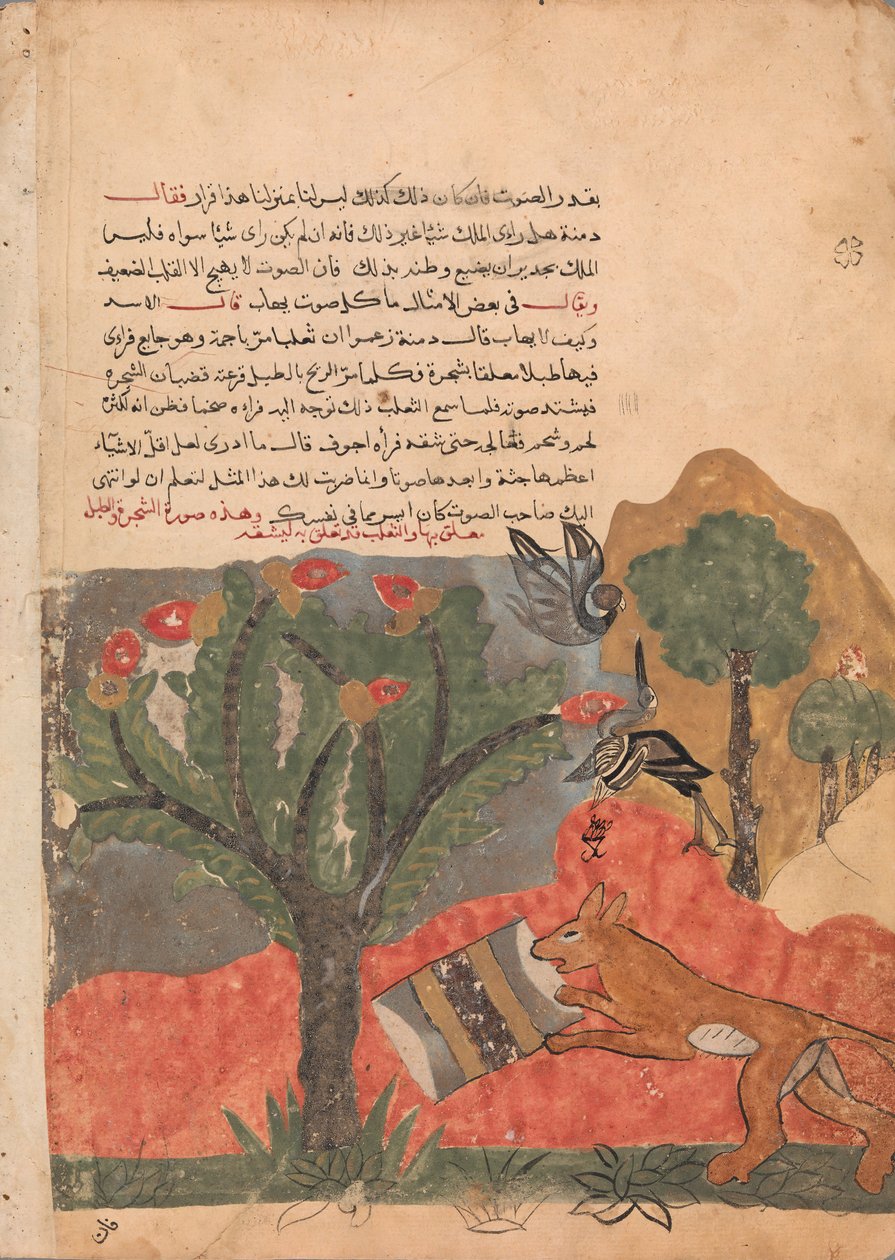 بقدر الصوت فان كان ذلك كذلك ليس لنا بمنزلنا هذا قرار فقال
دمنة هل راى الملك شيئا غير ذلك فانه ان لم يكن راى شيئا سواه فليس
الملك بجدير ان يضيع وطنه بذلك فان الصوت لا يهيج الا القلب الضعيف
ويقال فى بعض الامثال ما كل صوت يهاب قال الاسد
وكيف لا يهاب قال دمنة زعموا ان ثعلبا مرّ باجمة وهو جايع فراى
فيها طبلا معلقا بشجرة فكلما مرّ الريح بالطبل قرعته قضبان الشجره
فيشتد صوته فلما سمع الثعلب ذلك توجه اليه فراه ضخما فظن انه لكثرة
لحم وشحم حتى شقه فرأه اجوف قال ما ادرى لعل اقلّ الاشيآء
اعظمها جثة وابعدها صوتا وانما ضربت لك هذا المثل لتعلم ان لو انتهى
اليك صاحب الصوت كان ايسر مما في نفسك وهذه صورة الشجرة والطبل
معلق بها والثعلب قد تعلق به ليشقه
فان